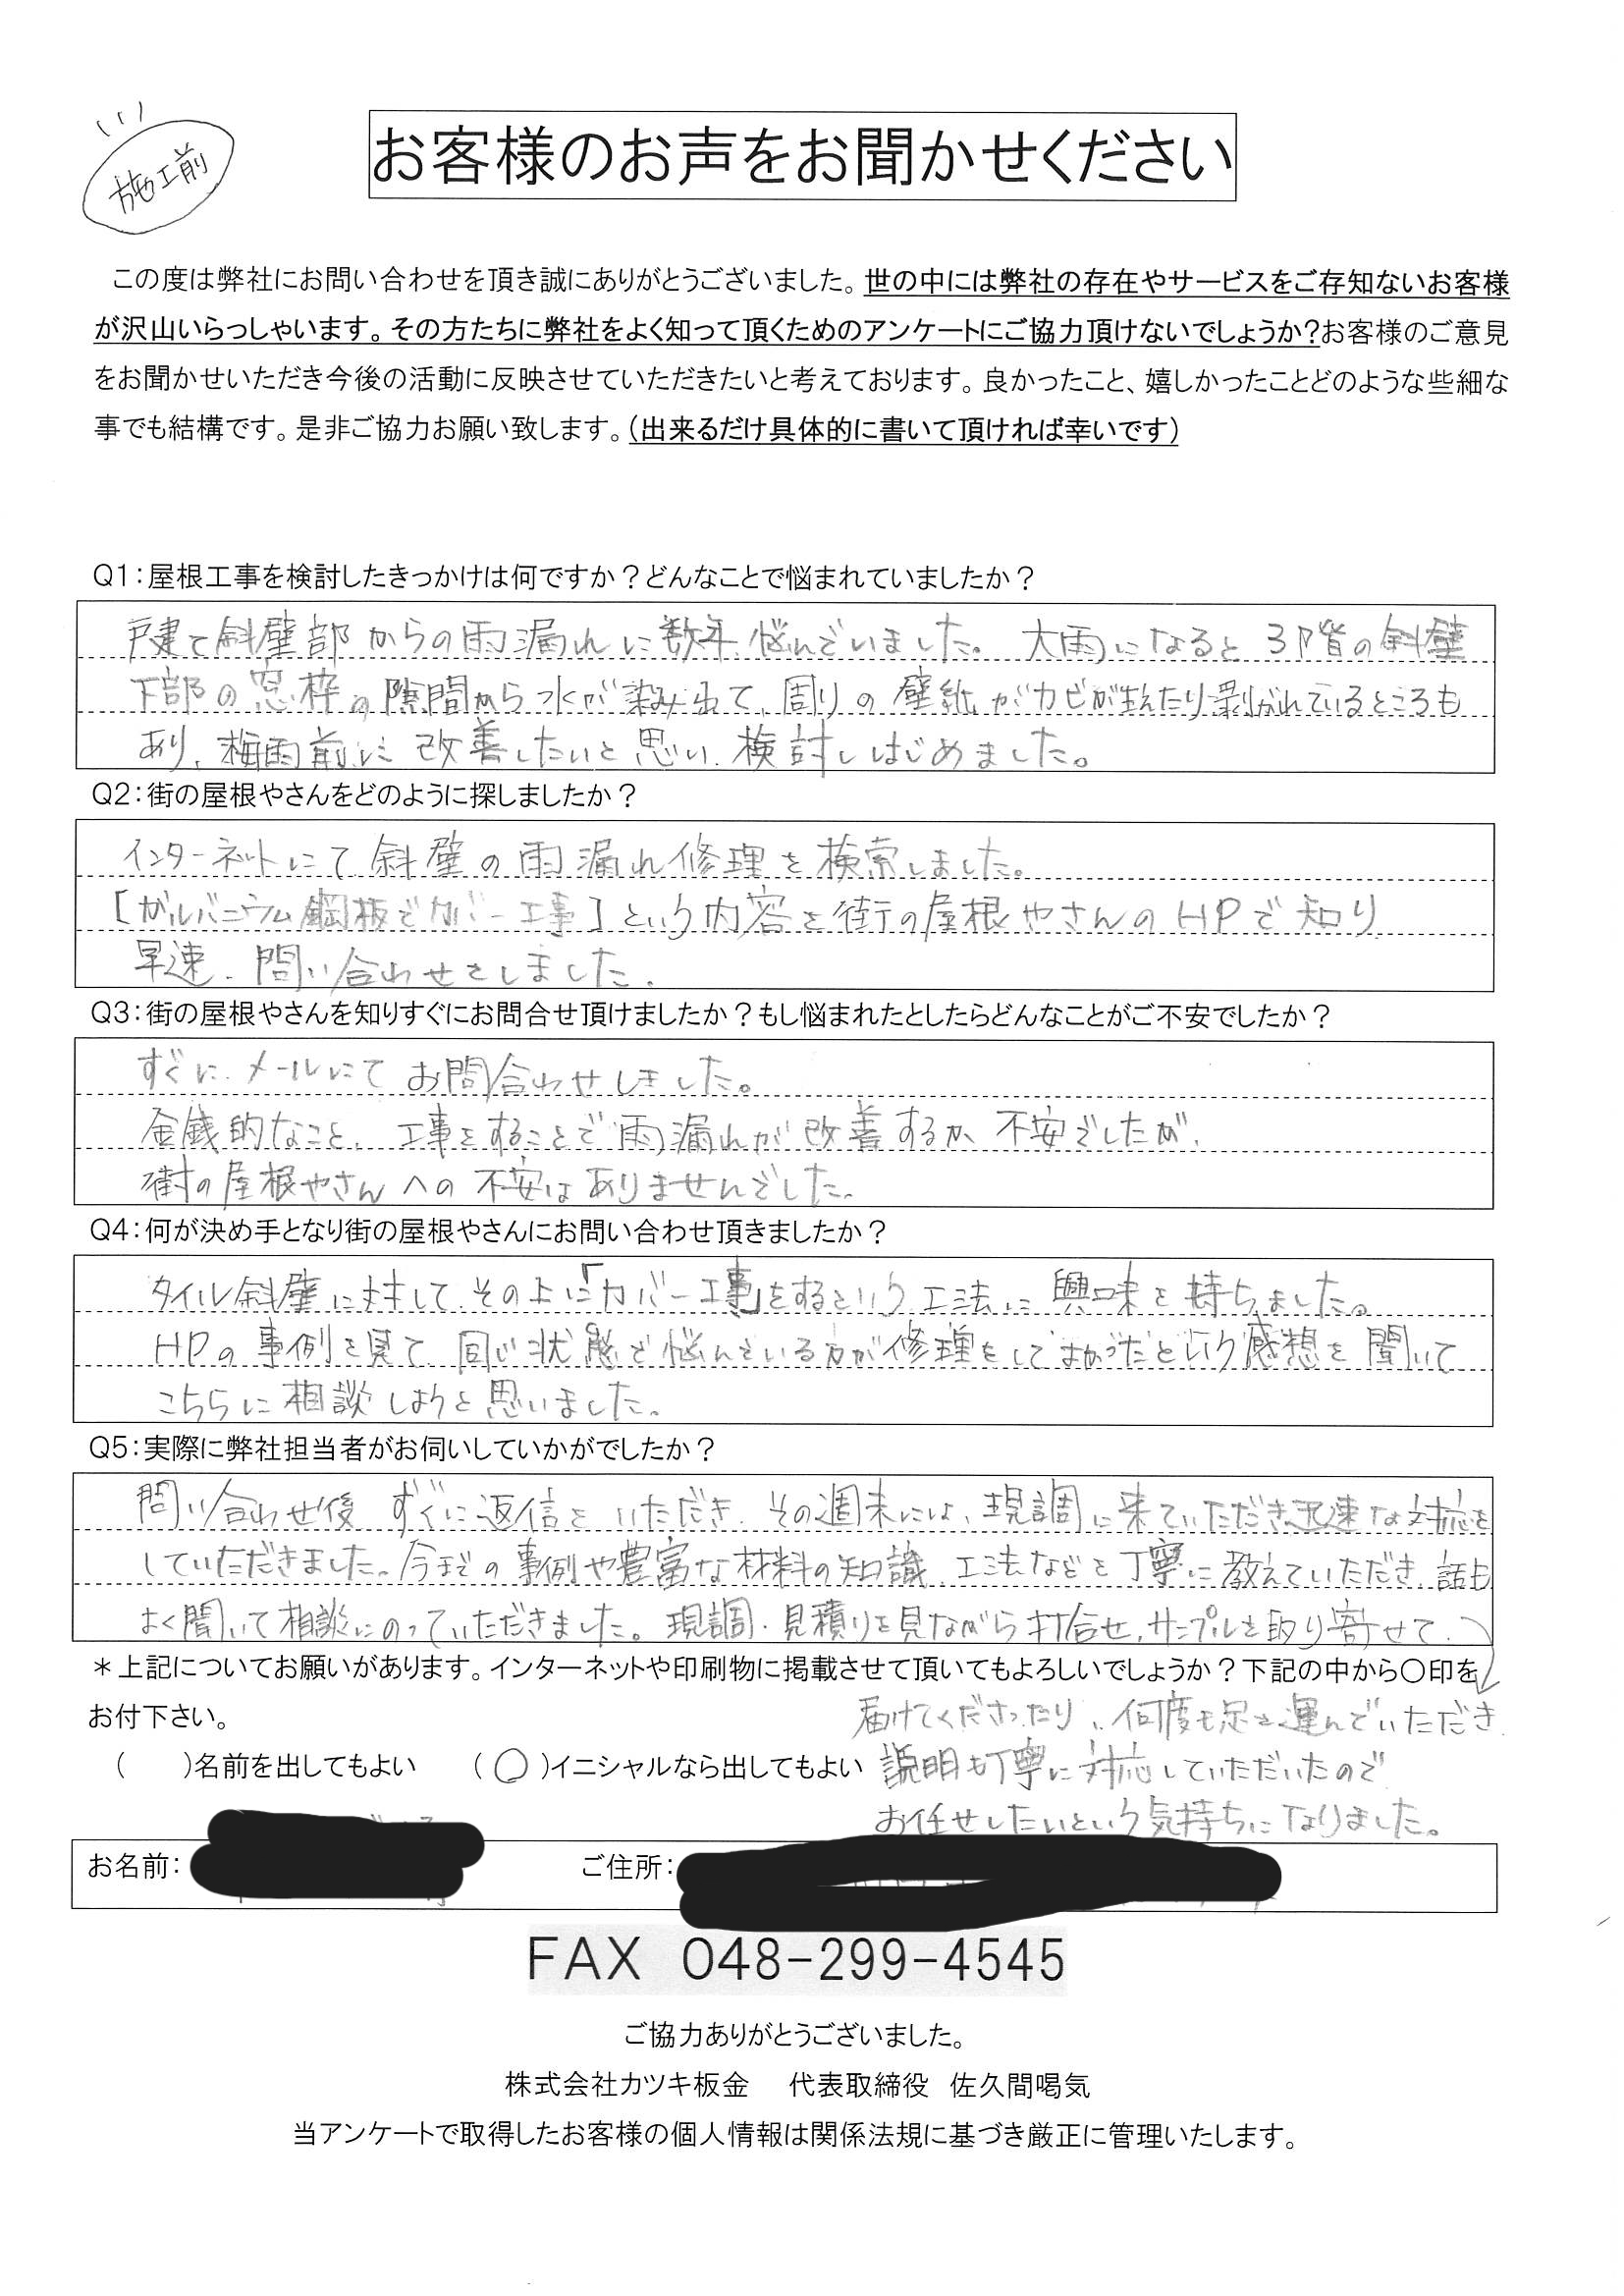 施工前
お客様のお声をお聞かせください
この度は弊社にお問い合わせを頂き誠にありがとうございました。世の中には弊社の存在やサービスをご存知ないお客様
が沢山いらっしゃいます。その方たちに弊社をよく知って頂くためのアンケートにご協力頂けないでしょうか?お客様のご意見
をお聞かせいただき今後の活動に反映させていただきたいと考えております。良かったこと、嬉しかったことどのような些細な
事でも結構です。是非ご協力お願い致します。(出来るだけ具体的に書いて頂ければ幸いです)
Q1:屋根工事を検討したきっかけは何ですか?どんなことで悩まれていましたか?
戸建て斜壁部からの雨漏れに数年、悩んでいました。大雨になると3階の斜壁
下部の窓枠の隙間から水が染み出て、周りの壁紙がカビが生えたり剥がれているところも
あり、梅雨前に改善したいと思い、検討しはじめました。
Q2:街の屋根やさんをどのように探しましたか?
インターネットにて斜壁の雨漏れ修理を検索しました。
[ガルバニウム鋼板でカバー工事]という内容を街の屋根やさんのHPで知り
早速、問い合わせをしました。
Q3:街の屋根やさんを知りすぐにお問合せ頂けましたか?もし悩まれたとしたらどんなことがご不安でしたか?
すぐに、メールにてお問合わせしました。
金銭的なこと、工事をすることで雨漏れが改善するか、不安でしたが、
街の屋根やさんへの不安はありませんでした。
Q4:何が決め手となり街の屋根やさんにお問い合わせ頂きましたか?
タイル斜壁に対して、その上に「カバー工事」をするという工法に興味を持ちました。
HPの事例を見て、同じ状態で悩んでいる方が修理をしてよかったという感想を聞いて
こちらに相談しようと思いました。
Q5:実際に弊社担当者がお伺いしていかがでしたか?
問い合わせ後すぐに返信をいただき、その週末には、現調に来ていただき迅速な対応を
していただきました。今までの事例や豊富な材料の知識、工法などを丁寧に教えていただき、話も
よく聞いて相談にのっていただきました。現調・見積りを見ながら打合せ、サンプルを取り寄せて、
*上記についてお願いがあります。インターネットや印刷物に掲載させて頂いてもよろしいでしょうか?下記の中から〇印を
お付下さい。
届けてくださったり、何度も足を運んでいただき
( )名前を出してもよい (〇)イニシャルなら出してもよい
説明も丁寧に対応していただいたので
お任せしたいという気持ちになりました。
お名前: ご住所:
FAX 048-299-4545
ご協力ありがとうございました。
株式会社カツキ板金 代表取締役 佐久間喝気
当アンケートで取得したお客様の個人情報は関係法規に基づき厳正に管理いたします。